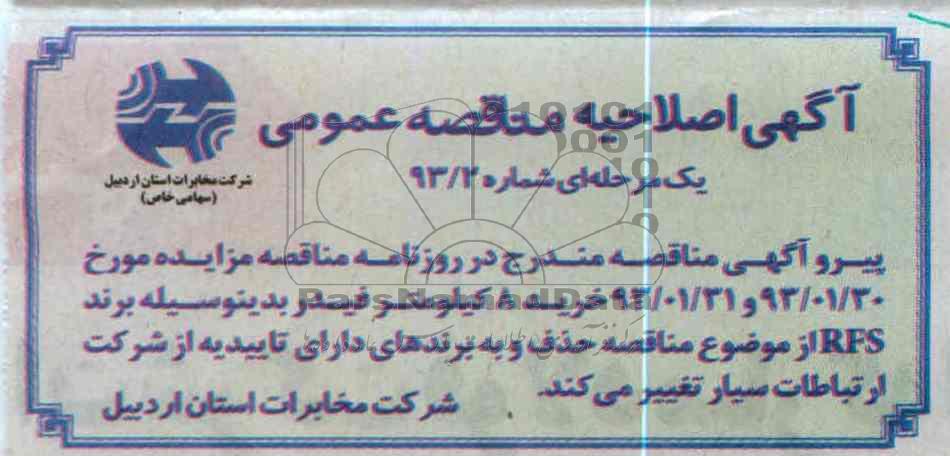 آگهی اصلاحیه مناقصه عمومی
یک مرحله‌ای شماره ۹۳/۲
شرکت مخابرات استان اردبیل
(سهامی خاص)
پیرو آگهی مناقصه مندرج در روزنامه مناقصه مزایده مورخ
۹۳/۰۱/۳۰ و ۹۳/۰۱/۳۱ خرید ۸ کیلومتر فیدر بدینوسیله برند
RFS از موضوع مناقصه حذف و به برندهای دارای تاییدیه از شرکت
ارتباطات سیار تغییر می‌کند.
شرکت مخابرات استان اردبیل
ParsNamadData